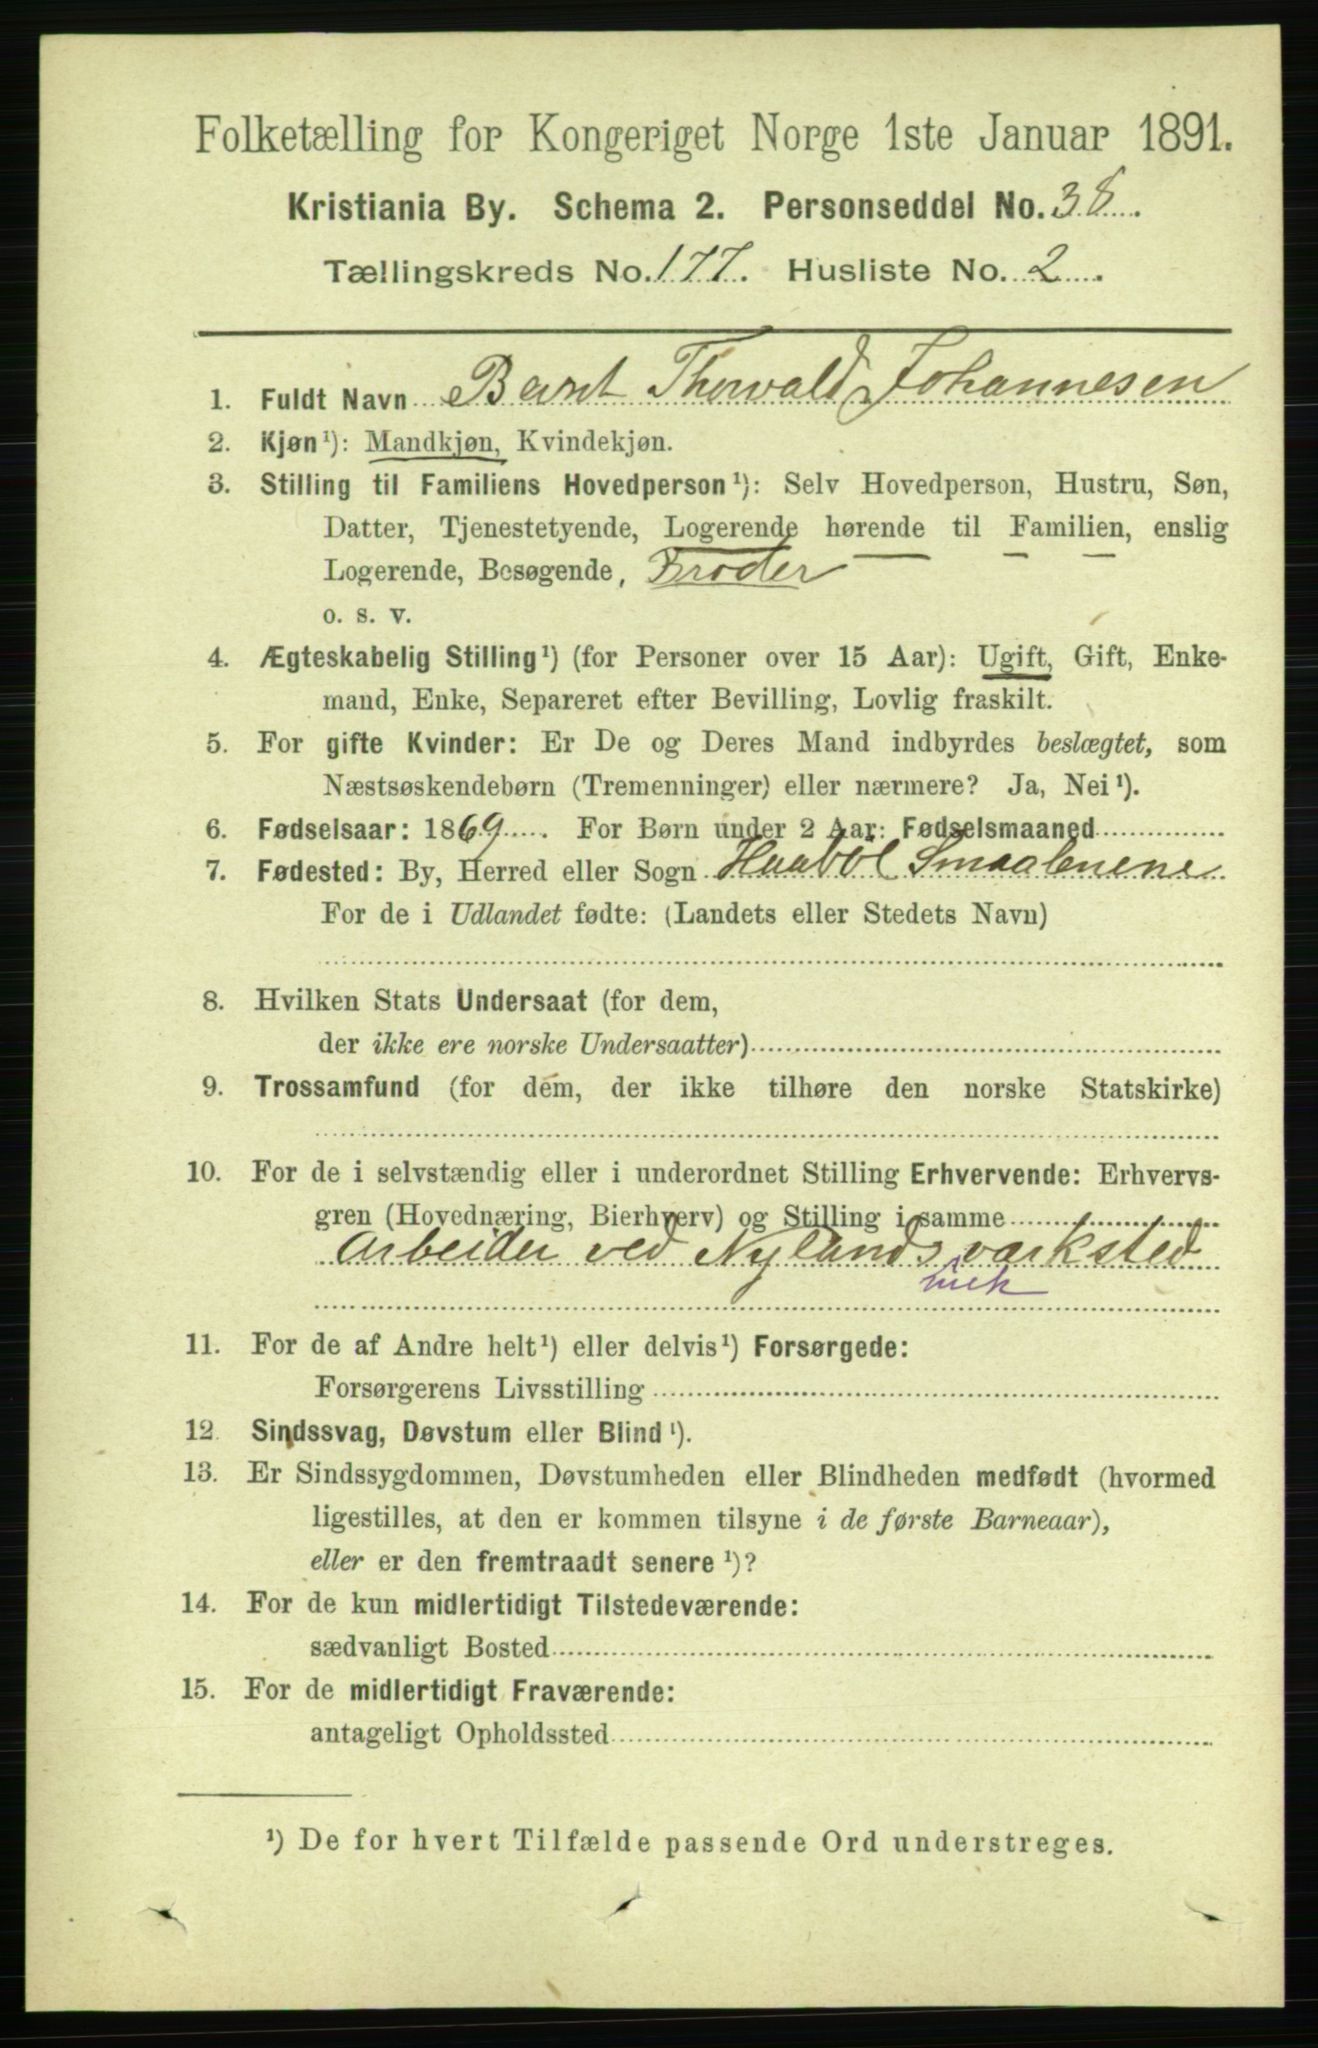 Folketælling for Kongeriget Norge 1ste Januar 1891.
Kristiania By. Schema 2. Personseddel No. 38.
Tællingskreds No. 177. Husliste No. 2.
1. Fuldt Navn Bernt Thorvald Johannesen
2. Kjøn¹): Mandkjøn, Kvindekjøn.
3. Stilling til Familiens Hovedperson¹): Selv Hovedperson, Hustru, Søn,
Datter, Tjenestetyende, Logerende hørende til Familien, enslig
Logerende, Besøgende, Broder
o. s. v.
4. Ægteskabelig Stilling¹) (for Personer over 15 Aar): Ugift, Gift, Enke-
mand, Enke, Separeret efter Bevilling, Lovlig fraskilt.
5. For gifte Kvinder: Er De og Deres Mand indbyrdes beslægtet, som
Næstsøskendebørn (Tremenninger) eller nærmere? Ja, Nei¹).
6. Fødselsaar: 1869. For Børn under 2 Aar: Fødselsmaaned
7. Fødested: By, Herred eller Sogn Haabøl Smaalenene
For de i Udlandet fødte: (Landets eller Stedets Navn)
8. Hvilken Stats Undersaat (for dem,
der ikke ere norske Undersaatter)
9. Trossamfund (for dem, der ikke tilhøre den norske Statskirke)
10. For de i selvstændig eller i underordnet Stilling Erhvervende: Erhvervs-
gren (Hovednæring, Bierhverv) og Stilling i samme
Arbeider ved Nylands værksted
mek
11. For de af Andre helt¹) eller delvis¹) Forsørgede:
Forsørgerens Livsstilling
12. Sindssvag, Døvstum eller Blind¹).
13. Er Sindssygdommen, Døvstumheden eller Blindheden medfødt (hvormed
ligestilles, at den er kommen tilsyne i de første Barneaar),
eller er den fremtraadt senere¹)?
14. For de kun midlertidigt Tilstedeværende:
sædvanligt Bosted
15. For de midlertidigt Fraværende:
antageligt Opholdssted
¹) De for hvert Tilfælde passende Ord understreges.